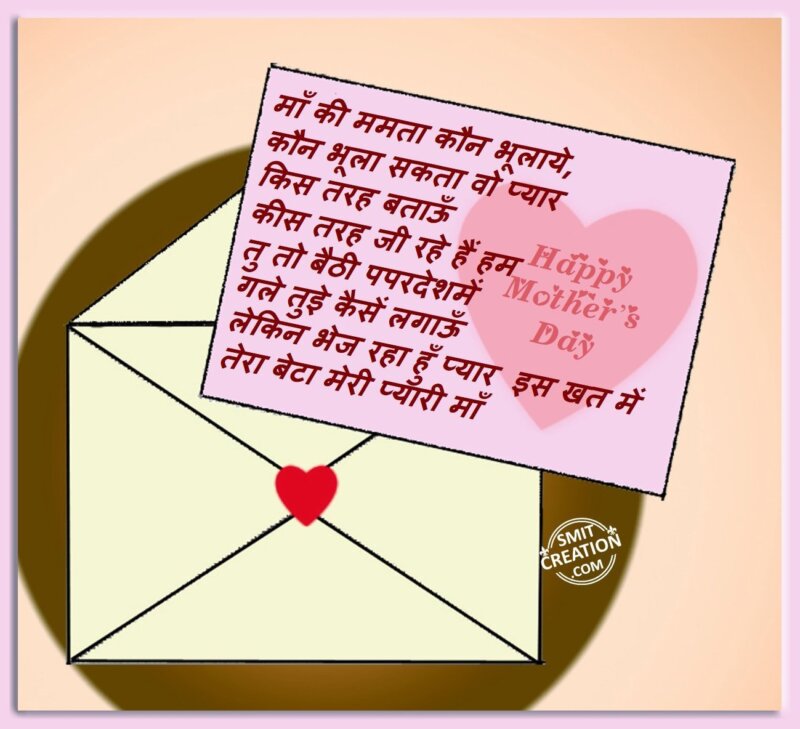 माँ की ममता कौन भूलाये,
कौन भूला सकता वो प्यार
किस तरह बताऊँ
कीस तरह जी रहे हैं हम
तु तो बैठी पपरदेशमें
गले तुझे कैसें लगाऊँ
लेकिन भेज रहा हुँ प्यार इस खत में
तेरा बेटा मेरी प्यारी माँ
Happy
Mother's
Day
SMIT
CREATION
.COM